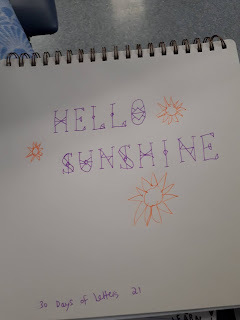 HELLO
SUNSHINE
30 Days of letters 21